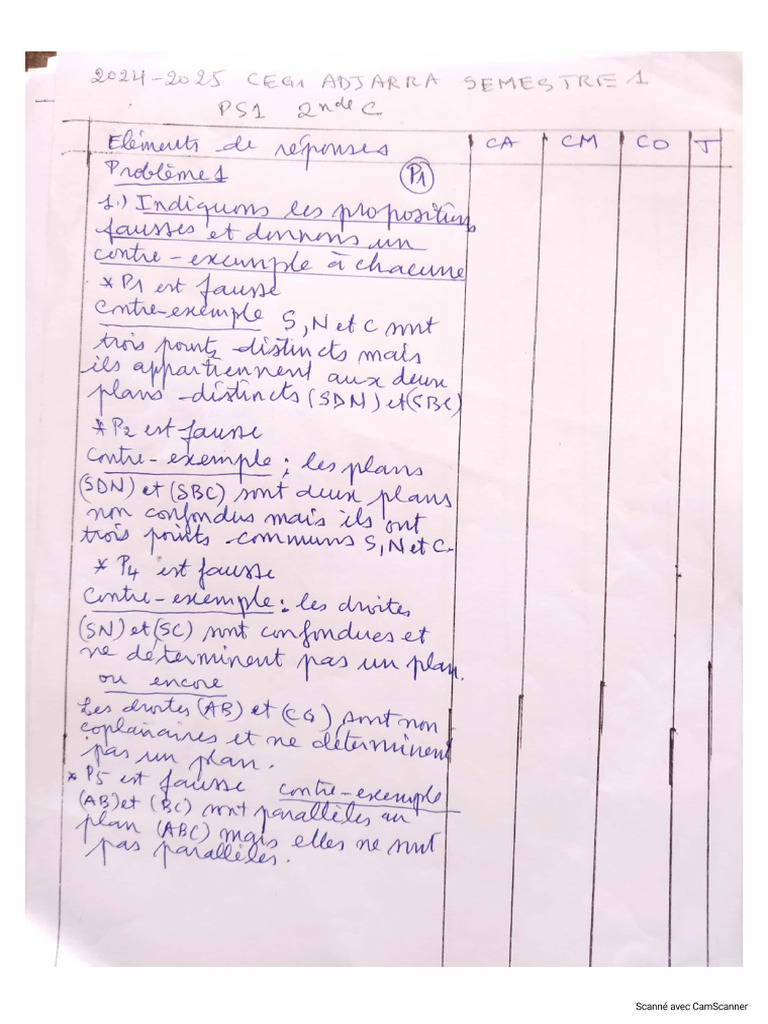 2024-2025 CEG1 ADJARRA SEMESTRE 1
PS1 2nde C
Eléments de réponses CA CM CO T
Problème 1 P1
1.) Indiquons les propositions
fausses et donnons un
contre-exemple à chacune
* P1 est fausse
Contre-exemple S, N et C sont
trois points distincts mais
ils appartiennent aux deux
plans distincts (SDN) et (SBC)
* P2 est fausse
Contre-exemple : les plans
(SDN) et (SBC) sont deux plans
non confondus mais ils ont
trois points communs S, N et C.
* P4 est fausse
Contre-exemple : les droites
(SN) et (SC) sont confondues et
ne déterminent pas un plan.
ou encore
Les droites (AB) et (CG) sont non
coplanaires et ne déterminent
pas un plan.
* P5 est fausse contre-exemple
(AB) et (BC) sont parallèles au
plan (ABC) mais elles ne sont
pas parallèles.
Scanné avec CamScanner